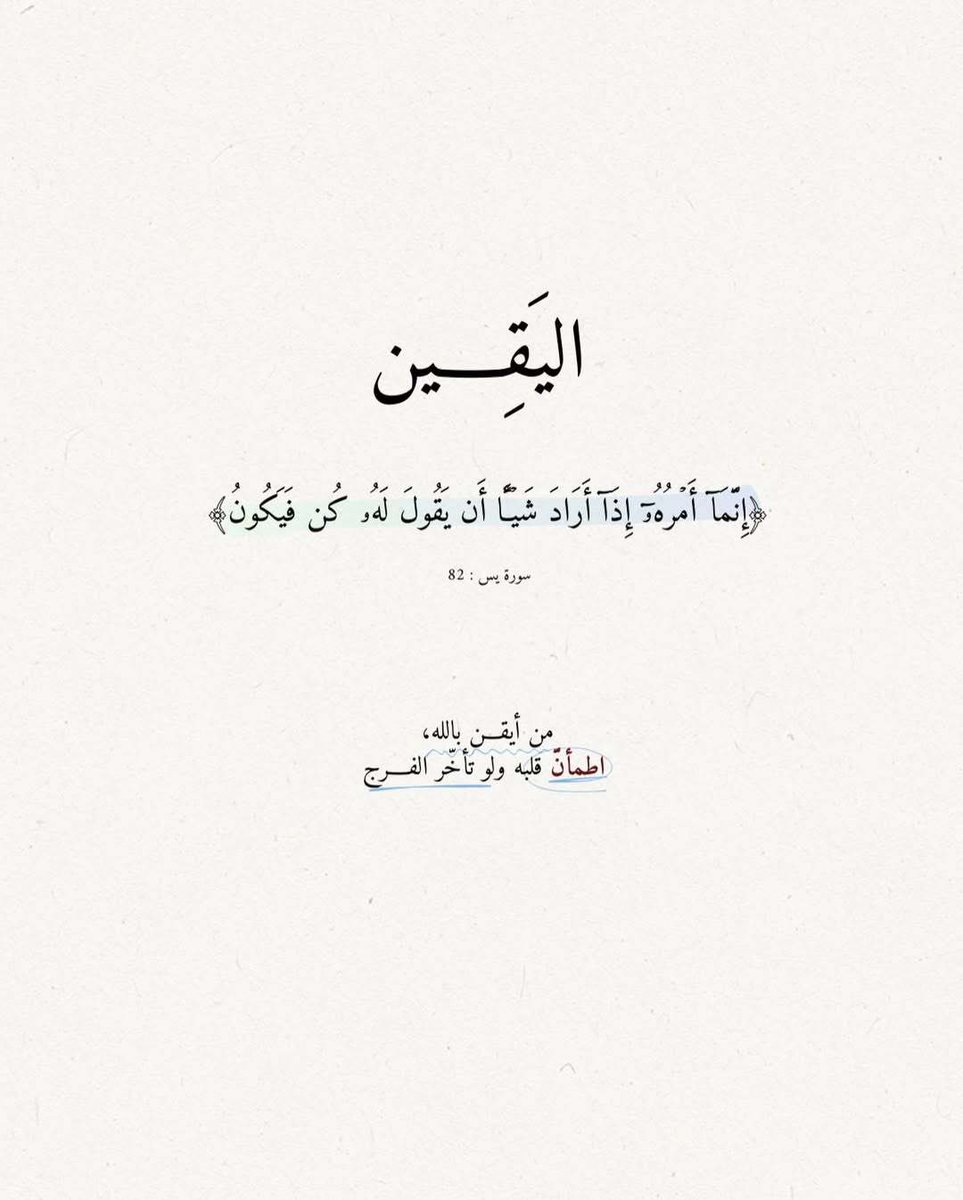 اليَقِـــين
﴿إِنَّمَآ أَمْرُهُۥٓ إِذَآ أَرَادَ شَيْـًٔا أَن يَقُولَ لَهُۥ كُن فَيَكُونُ﴾
سورة يس : 82
من أيقـــن بالله،
اطمأنّ قلبه ولو تأخّر الفـــرج